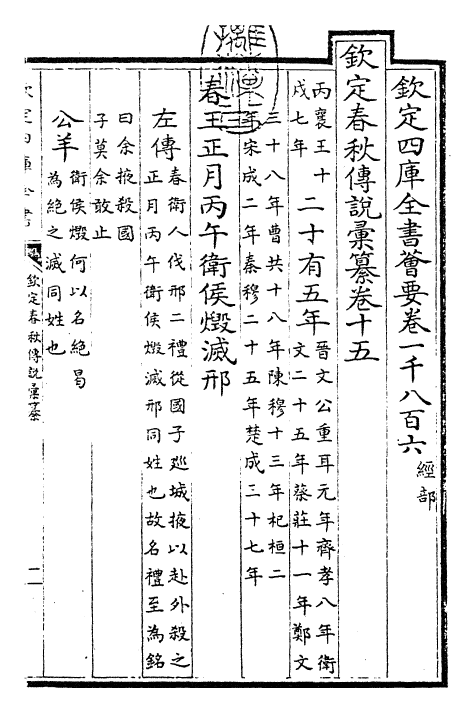 欽定四庫全書薈要卷一千八百六 經部
欽定春秋傳說彙纂卷十五
丙戌 襄王十七年
二十有五年
晉文公重耳元年齊孝八年衛文二十五年蔡莊十一年鄭文
三十八年曹共十八年陳穆十三年杞桓二年宋成二年秦穆二十五年楚成三十七年
春王正月丙午衛侯燬滅邢
左傳 春衛人伐邢二禮從國子廵城掖以赴外殺之
正月丙午衛侯燬滅邢同姓也故名禮至為銘
曰余掖殺國
子莫余敢止
公羊 衛侯燬何以名絕曷
為絕之滅同姓也
欽定四庫全書
欽定春秋傳說彙纂